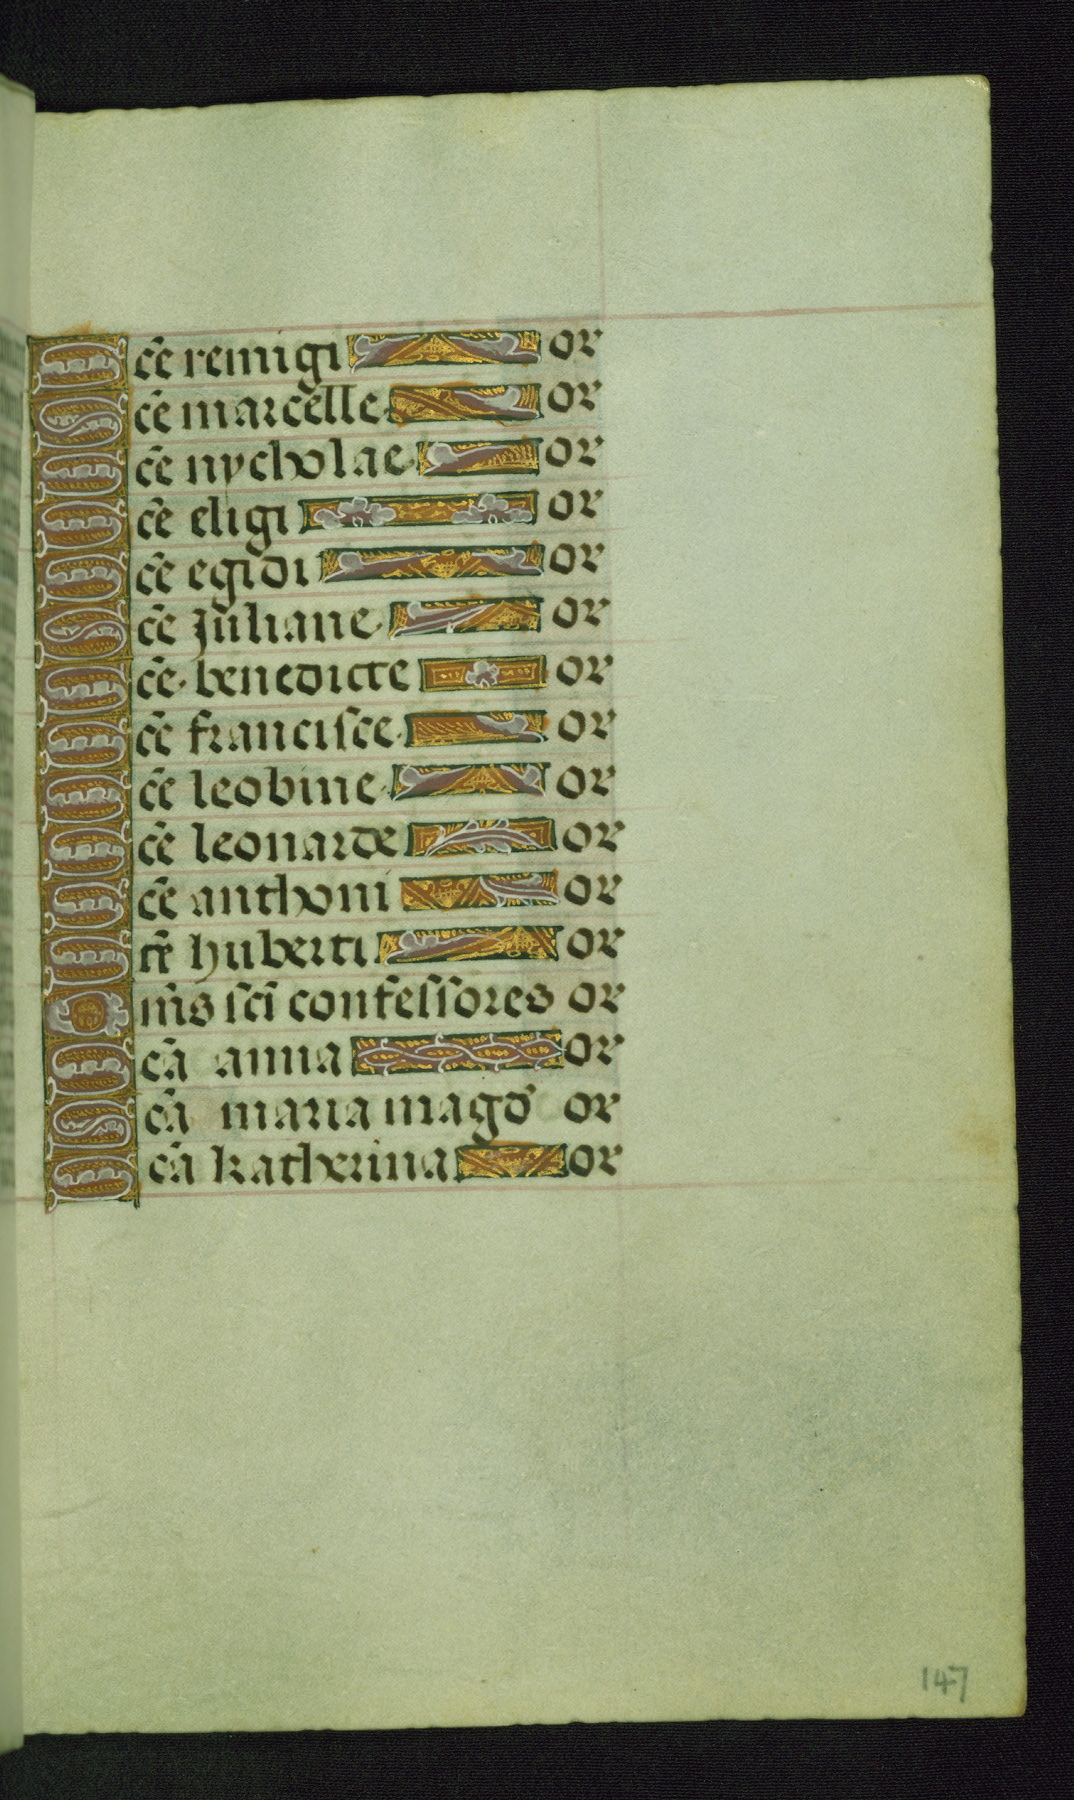 Sc̄e remigi or
Sc̄e marcelle or
Sc̄e nycholae or
Sc̄e eligi or
Sc̄e egidi or
Sc̄e Juliane or
Sc̄e benedicte or
Sc̄e francisce or
Sc̄e leobine or
Sc̄e leonarde or
Sc̄e anthoni or
Sc̄e huberti or
Om̄s sc̄i confessores or
Sc̄a anna or
Sc̄a maria magd' or
Sc̄a katherina or
147